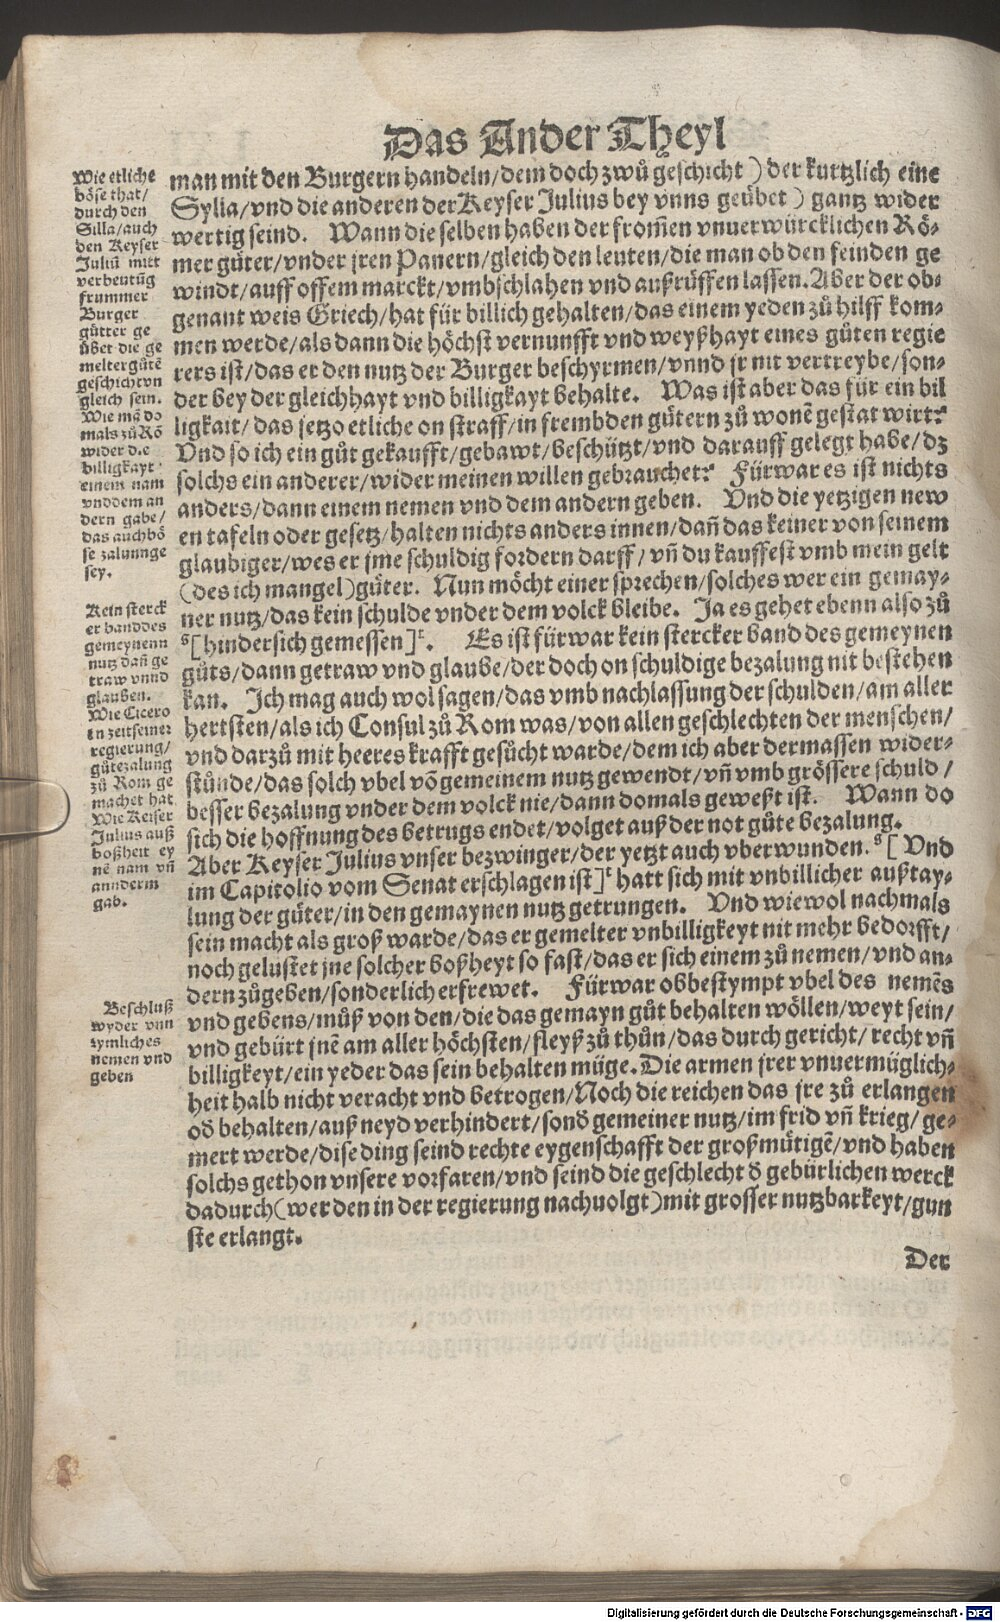 Das Ander Theyl
Wie etliche
böse that/
durch den
Silla/auch
den Keyser
Juliū mitt
verbeutūg
frummer
Burger
gütter ge
übet die ge
meltergütē
geschichtvn
gleich sein.
Wie mā do
mals zů Rō
wider die
billigkayt
einem nam
vnddem an
dern gabe/
das auchbö
se zalunnge
sey.
Kein sterck
er banddes
gemeynenn
nutz dañ ge
traw vnnd
glauben.
Wie Cicero
in zeitseiner
regierung/
gůtezalung
zů Rom ge
machet hat
Wie Keiser
Julius auß
boßheit ey
nē nam vñ
annderm
gab.
Beschluß
wyder vnn
zymliches
nemen vnd
geben
man mit den Burgern handeln/dem doch zwů geschicht) der kurtzlich eine
Sylla/vnd die anderen der Keyser Julius bey vnns geübet) gantz wider
wertig seind. Wann die selben haben der from̃en vnuerwürcklichen Rö-
mer gůter/vnder jren Panern/gleich den leuten/die man ob den feinden ge
windt/auff offem marckt/vmbschlahen vnd außrüffen lassen. Aber der ob-
genant weis Griech/hat für billich gehalten/das einem yeden zů hilff kom-
men werde/als dann die höchst vernunfft vnd weyßhayt eines gůten regie
rers ist/das er den nutz der Burger beschyrmen/vnnd jr nit vertreybe/son-
der bey der gleichhayt vnd billigkayt behalte. Was ist aber das für ein bil
ligkait/das jetzo etliche on straff/in frembden gütern zů wonē gestat wirt?
Vnd so ich ein gůt gekaufft/gebawt/beschützt/vnd darauff gelegt habe/dz
solchs ein anderer/wider meinen willen gebrauchet? Fürwar es ist nichts
anders/dann einem nemen vnd dem andern geben. Vnd die yetzigen new
en tafeln oder gesetz/halten nichts anders innen/dañ das keiner von seinem
glaubiger/wes er jme schuldig fordern darff/vñ du kauffest vmb mein gelt
(des ich mangel)gůter. Nun möcht einer sprechen/solches wer ein gemay-
ner nutz/das kein schulde vnder dem volck bleibe. Ja es gehet ebenn also zů
ˢ[hindersich gemessen]ᵗ. Es ist fürwar kein stercker band des gemeynen
gůts/dann getraw vnd glaube/der doch on schuldige bezalung nit bestehen
kan. Ich mag auch wol sagen/das vmb nachlassung der schulden/am aller
hertsten/als ich Consul zů Rom was/von allen geschlechten der menschen/
vnd darzů mit heeres krafft gesůcht warde/dem ich aber dermassen wider-
stůnde/das solch vbel vō gemeinem nutz gewendt/vñ vmb grössere schuld/
besser bezalung vnder dem volck nie/dann domals geweßt ist. Wann do
sich die hoffnung des betrugs endet/volget auß der not gůte bezalung.
Aber Keyser Julius vnser bezwinger/der yetzt auch vberwunden. ˢ[Vnd
im Capitolio vom Senat erschlagen ist]ᵗ hatt sich mit vnbillicher außtay-
lung der gůter/in den gemaynen nutz getrungen. Vnd wiewol nachmals
sein macht als groß warde/das er gemelter vnbilligkeyt nit mehr bedorfft/
noch gelustet jne solcher boßheyt so fast/das er sich einem zů nemen/vnd an-
dern zůgeben/sonderlich erfrewet. Fürwar obbestympt vbel des nemēs
vnd gebens/můß von den/die das gemayn gůt behalten wöllen/weyt sein/
vnd gebürt jnē am aller höchsten/fleyß zů thůn/das durch gericht/recht vñ
billigkeyt/ein yeder das sein behalten müge. Die armen jrer vnuermüglich-
heit halb nicht veracht vnd betrogen/Noch die reichen das jre zů erlangen
oð behalten/auß neyd verhindert/sonð gemeiner nutz/im frid vñ krieg/ge-
mert werde/dise ding seind rechte eygenschafft der großmütigē/vnd haben
solchs gethon vnsere vorfaren/vnd seind die geschlecht ð gebürlichen werck
dadurch(wer den in der regierung nachuolgt)mit grosser nutzbarkeyt/gun
ste erlangt.
Der
Digitalisierung gefördert durch die Deutsche Forschungsgemeinschaft - DFG